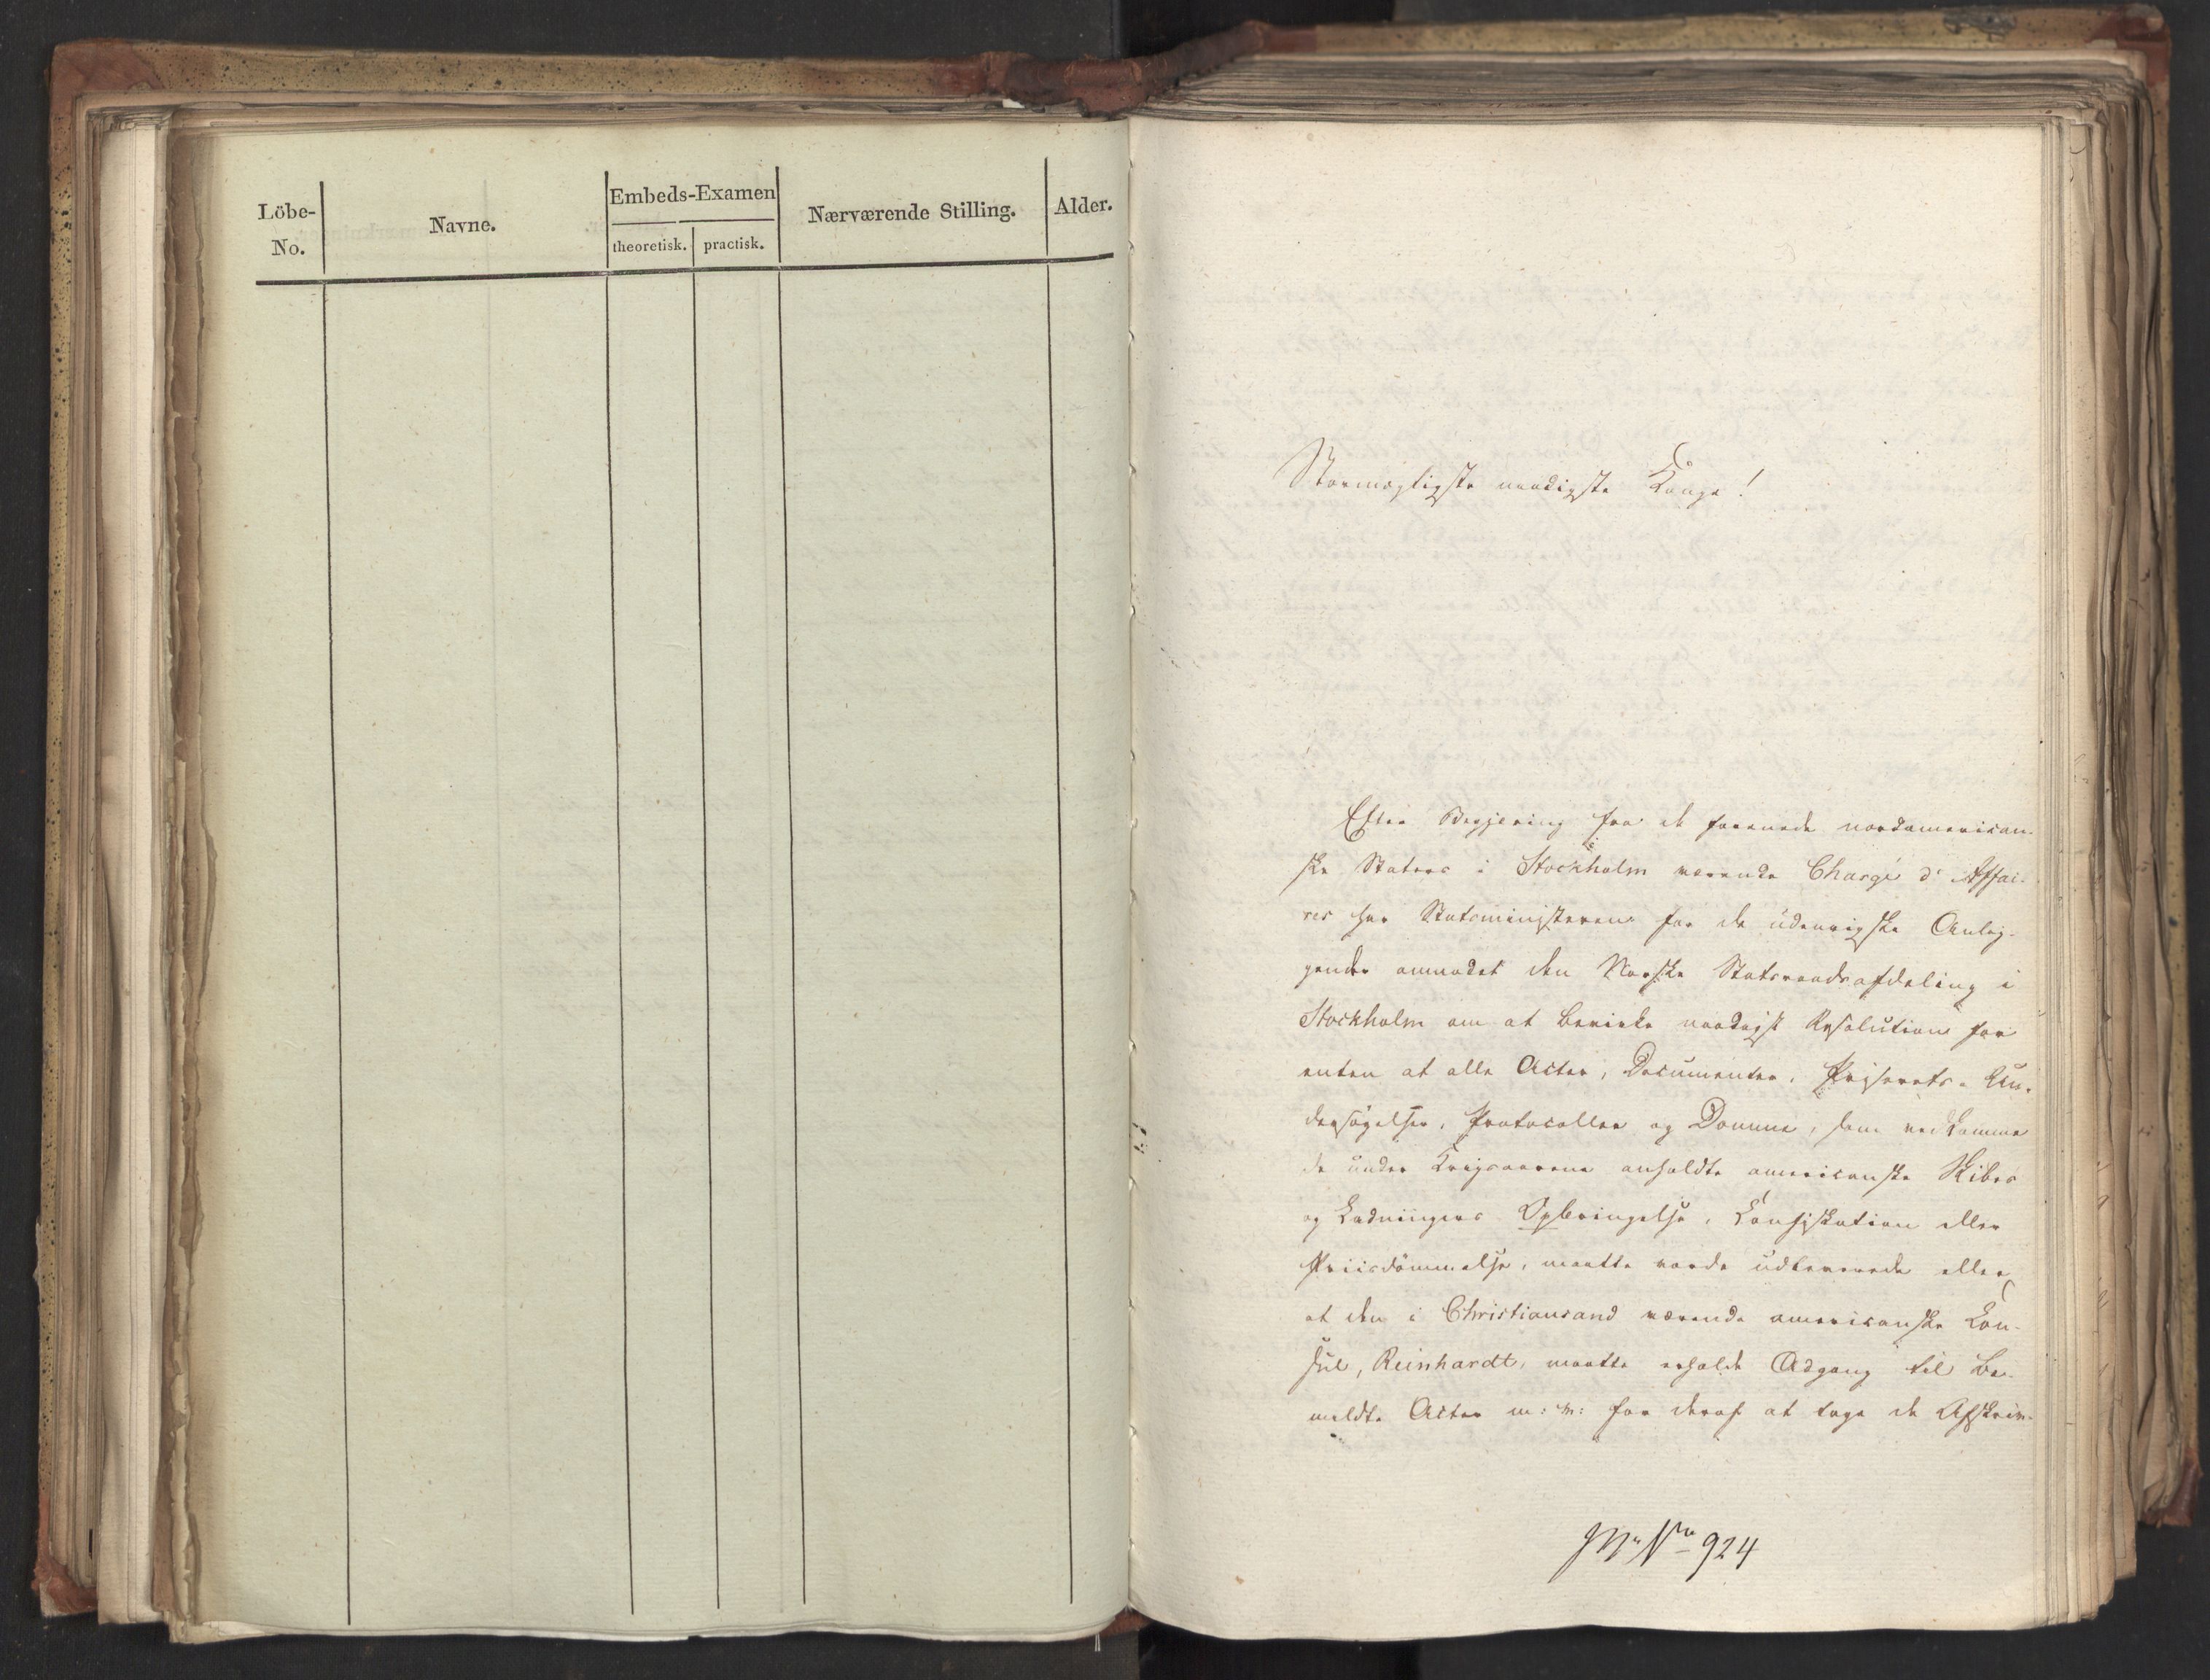 Löbe-
No.
Navne.
Embeds-Examen
theoretisk. practisk.
Nærværende Stilling.
Alder.
Stormægtigste naadigste Konge!
Efter Begjering fra de forenede nordamerican-
ske Staters i Stockholm værende Chargé d'Affai-
res har Statsministeren for de udenrigske Anlig-
gender anmodet den Norske Statsraadsafdeling i
Stockholm om at bevirke naadigst Resolution for
enten at alle Acter, Documenter, Priserets-Un-
dersøgelser, Protocoller og Domme, som vedkomme
de under Krigsaarene anholdte americanske Skibes
og Ladningers Opbringelse, Konfiskation eller
Priisdømmelse, maatte vorde udleverede eller
at den i Christiansand værende americanske Kon-
sul, Reinhardt, maatte erholde Adgang til be-
meldte Acter m: v: for deraf at tage de Afskriv-
No 924